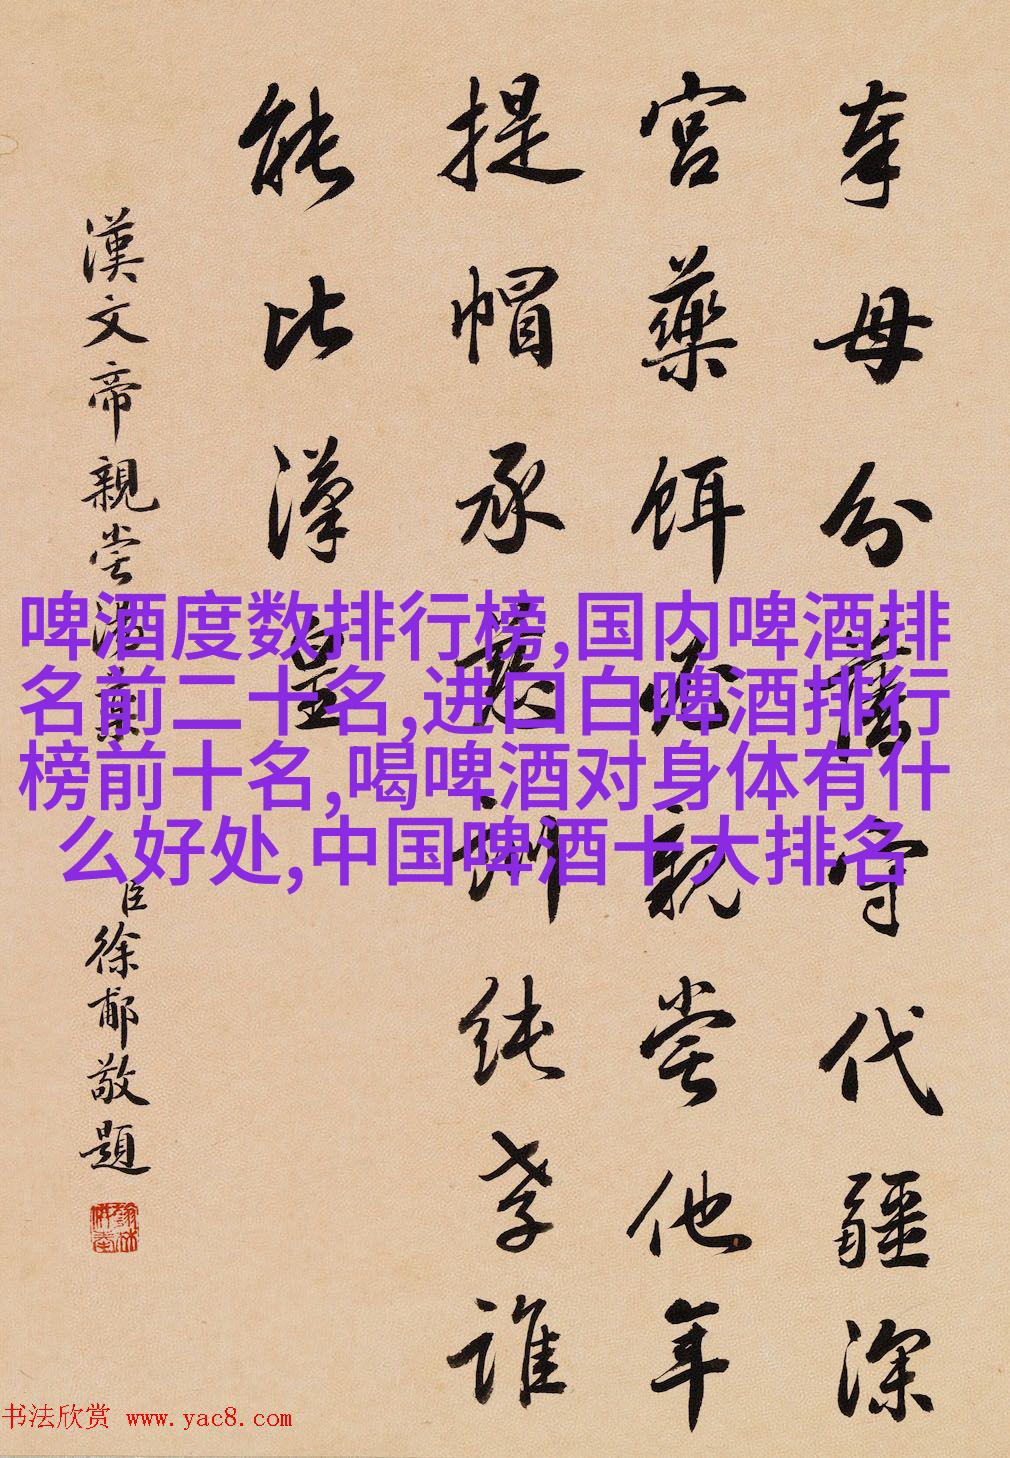 奉母分藩守代疆深
宮藥餌必親嘗他年
提帽承慈訓純孝誰
能比漢皇
漢文帝親嘗湯藥
臣徐郙敬題
啤酒度数排行榜,国内啤酒排
名前二十名,进口白啤酒排行
榜前十名,喝啤酒对身体有什
么好处,中国啤酒十大排名
书法欣赏 www.yac8.com